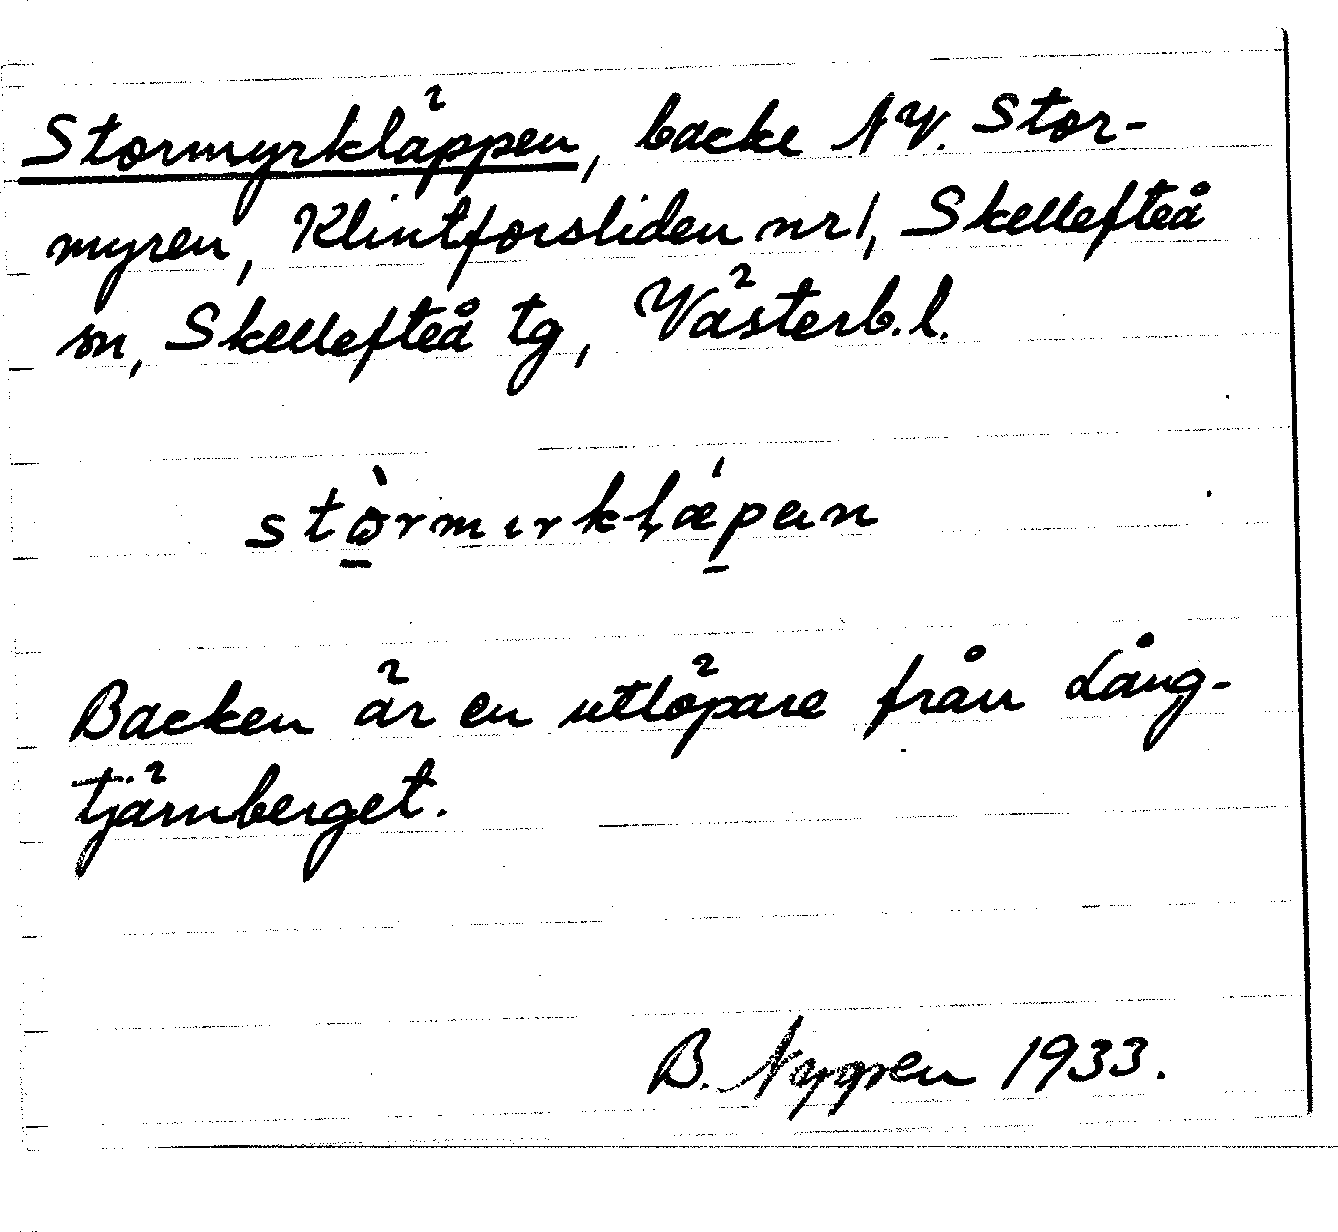 Stormyrkläppen, backe NV. Stor-
myren, Klintforsliden nr 1, Skellefteå
sn, Skellefteå tg, Västerb. l.
Backen är en utlöpare från Lång-
tjärnberget.
B. Nygren 1933.